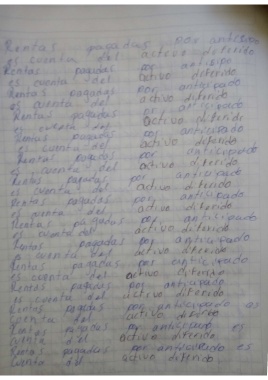 Rentas pagadas por anticipado
es cuenta del activo diferido
Rentas pagadas por anticipo
es cuenta del activo diferido
Rentas pagadas por anticipado
es cuenta del activo diferido
Rentas pagadas por anticipado
es cuenta del activo diferido
Rentas pagadas por anticipado
es cuenta del activo diferido
Rentas pagadas por anticipado
es cuenta del activo diferido
Rentas pagadas por anticipado
es cuenta del activo diferido
Rentas pagadas por anticipado
es cuenta del activo diferido
Rentas pagadas por anticipado
es cuenta del activo diferido
Rentas pagadas por anticipado
es cuenta del activo diferido
Rentas pagadas por anticipado
es cuenta del activo diferido
Rentas pagadas por anticipado
es cuenta del activo diferido
Rentas pagadas por anticipado es
cuenta del activo diferido
Rentas pagadas por anticipado es
cuenta del activo diferido
Rentas pagadas por anticipado es
cuenta del activo diferido